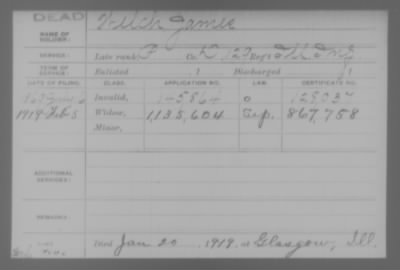 DEAD
NAME OF SOLDIER: Veitch James
SERVICE: Late rank P Co. K, 129 Reg't Ill Inf.
TERM OF SERVICE: Enlisted , 1 Discharged , 1
DATE OF FILING. CLASS. APPLICATION NO. LAW. CERTIFICATE NO.
Invalid,
1919 Feb 5 Widow, 1,135,604 Gep. 867,758
Minor,
ADDITIONAL SERVICES:
REMARKS:
Died Jan 20 1919, at Glasgow, Ill.